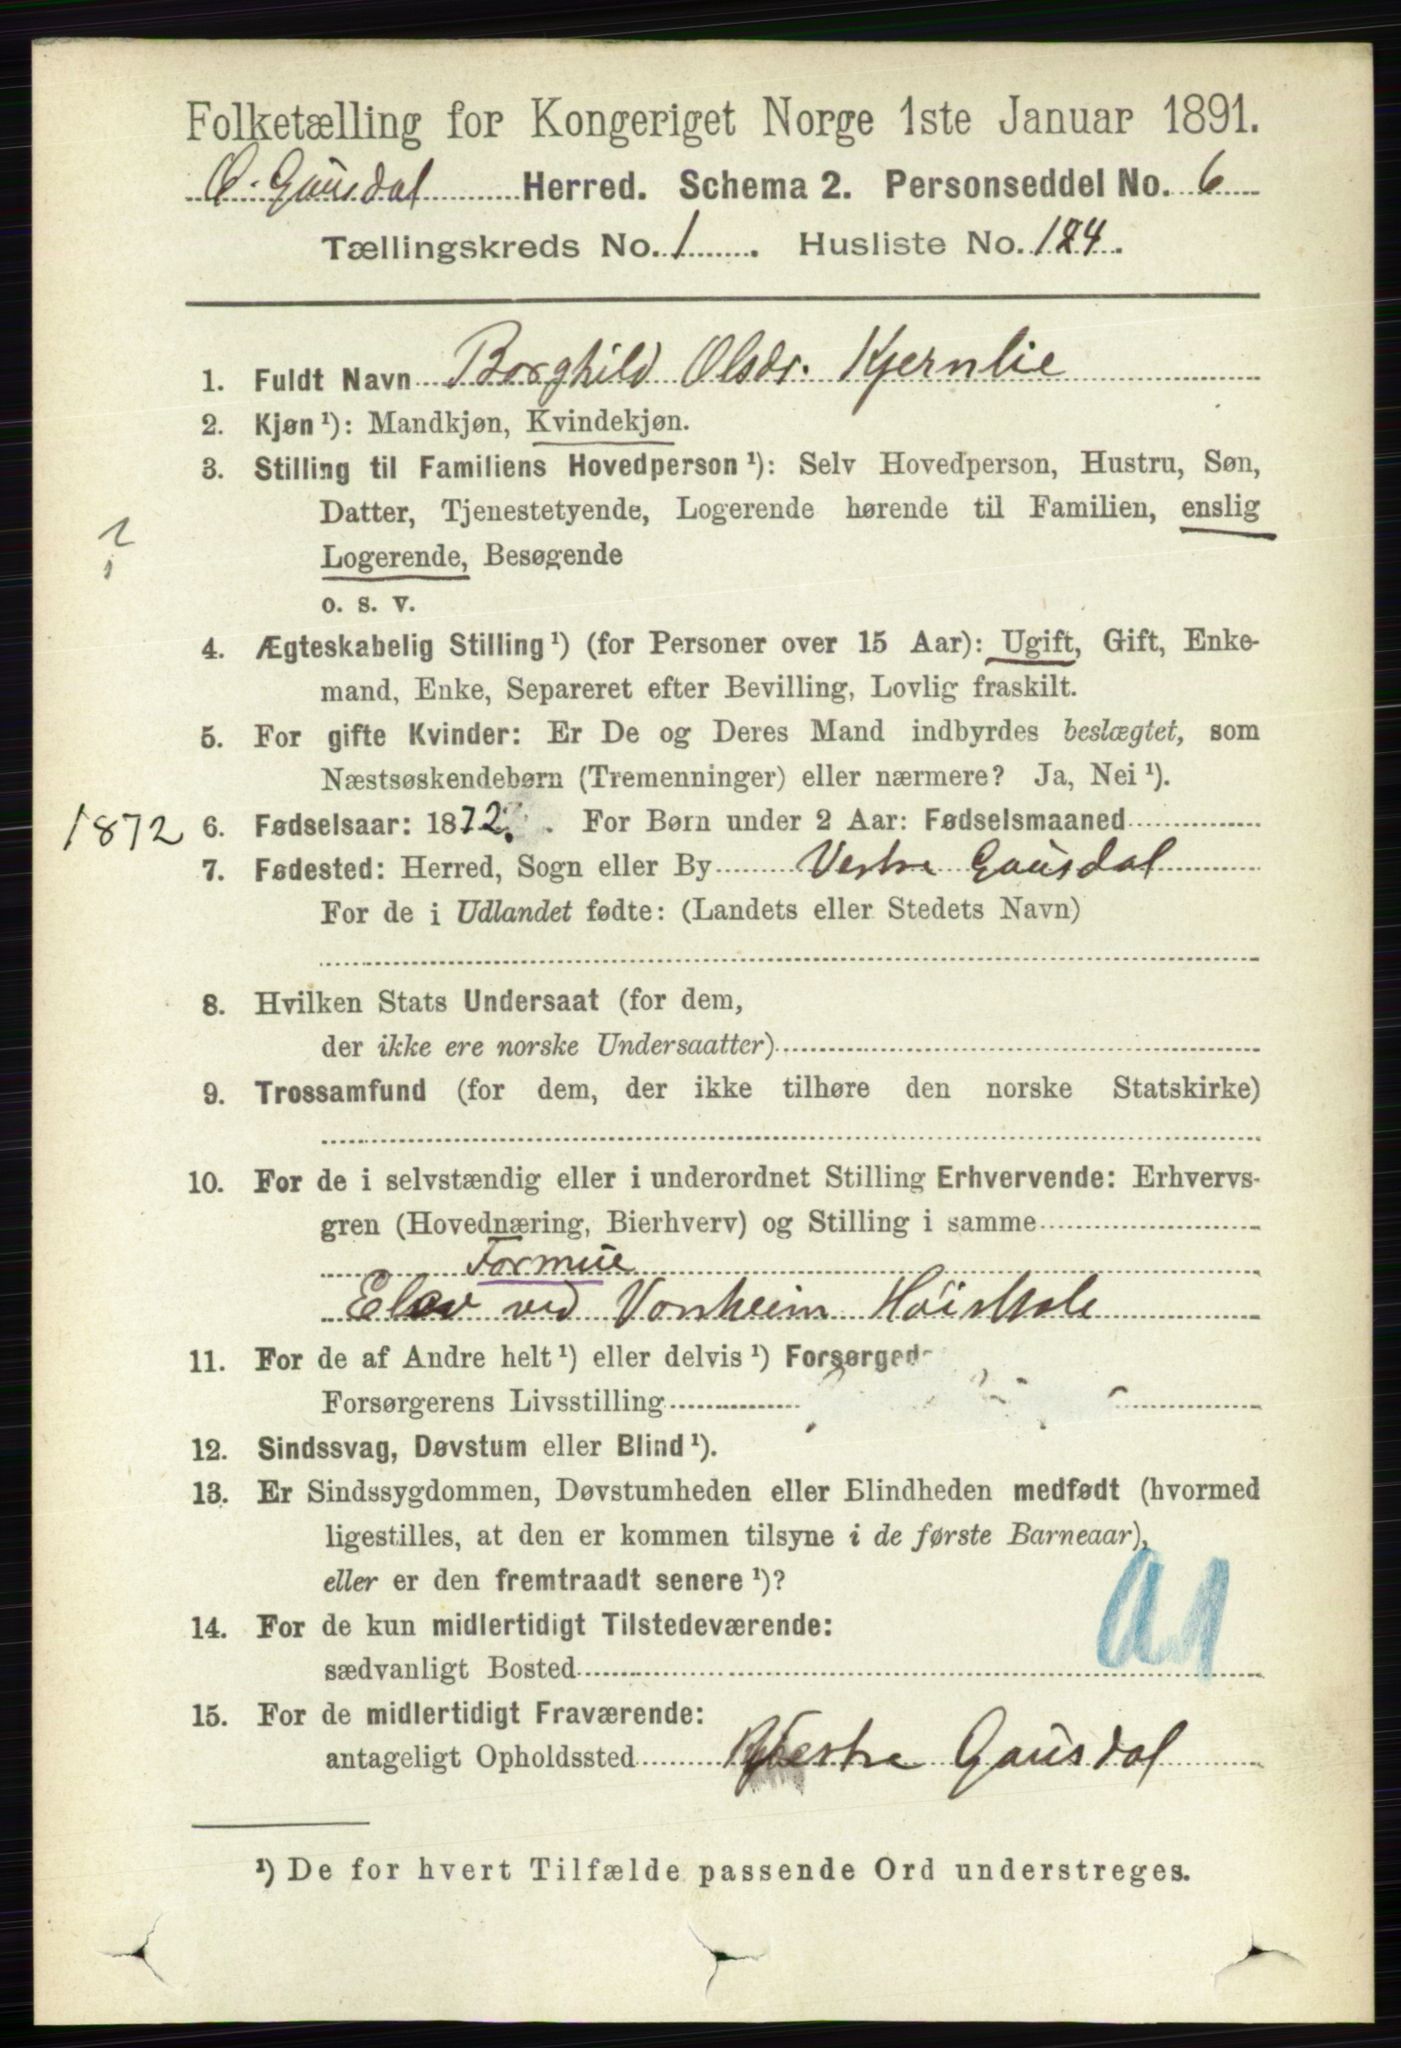 Folketælling for Kongeriget Norge 1ste Januar 1891.
Ø. Gausdal Herred. Schema 2. Personseddel No. 6
Tællingskreds No. 1. Husliste No. 124.
1. Fuldt Navn Borghild Olsdr. Kjernlie
2. Kjøn ¹): Mandkjøn, Kvindekjøn.
3. Stilling til Familiens Hovedperson ¹): Selv Hovedperson, Hustru, Søn,
Datter, Tjenestetyende, Logerende hørende til Familien, enslig
?
Logerende, Besøgende
o. s. v.
4. Ægteskabelig Stilling ¹) (for Personer over 15 Aar): Ugift, Gift, Enke-
mand, Enke, Separeret efter Bevilling, Lovlig fraskilt.
5. For gifte Kvinder: Er De og Deres Mand indbyrdes beslægtet, som
Næstsøskendebørn (Tremenninger) eller nærmere? Ja, Nei ¹).
1872 6. Fødselsaar: 1872. For Børn under 2 Aar: Fødselsmaaned
7. Fødested: Herred, Sogn eller By Vestre Gausdal
For de i Udlandet fødte: (Landets eller Stedets Navn)
8. Hvilken Stats Undersaat (for dem,
der ikke ere norske Undersaatter)
9. Trossamfund (for dem, der ikke tilhøre den norske Statskirke)
10. For de i selvstændig eller i underordnet Stilling Erhvervende: Erhvervs-
gren (Hovednæring, Bierhverv) og Stilling i samme
Formue
Elev ved Vonheim Höiskole
11. For de af Andre helt ¹) eller delvis ¹) Forsørged
Forsørgerens Livsstilling
12. Sindssvag, Døvstum eller Blind ¹).
13. Er Sindssygdommen, Døvstumheden eller Blindheden medfødt (hvormed
ligestilles, at den er kommen tilsyne i de første Barneaar),
eller er den fremtraadt senere ¹)?
14. For de kun midlertidigt Tilstedeværende:
sædvanligt Bosted
15. For de midlertidigt Fraværende:
antageligt Opholdssted Vestre Gausdal
¹) De for hvert Tilfælde passende Ord understreges.